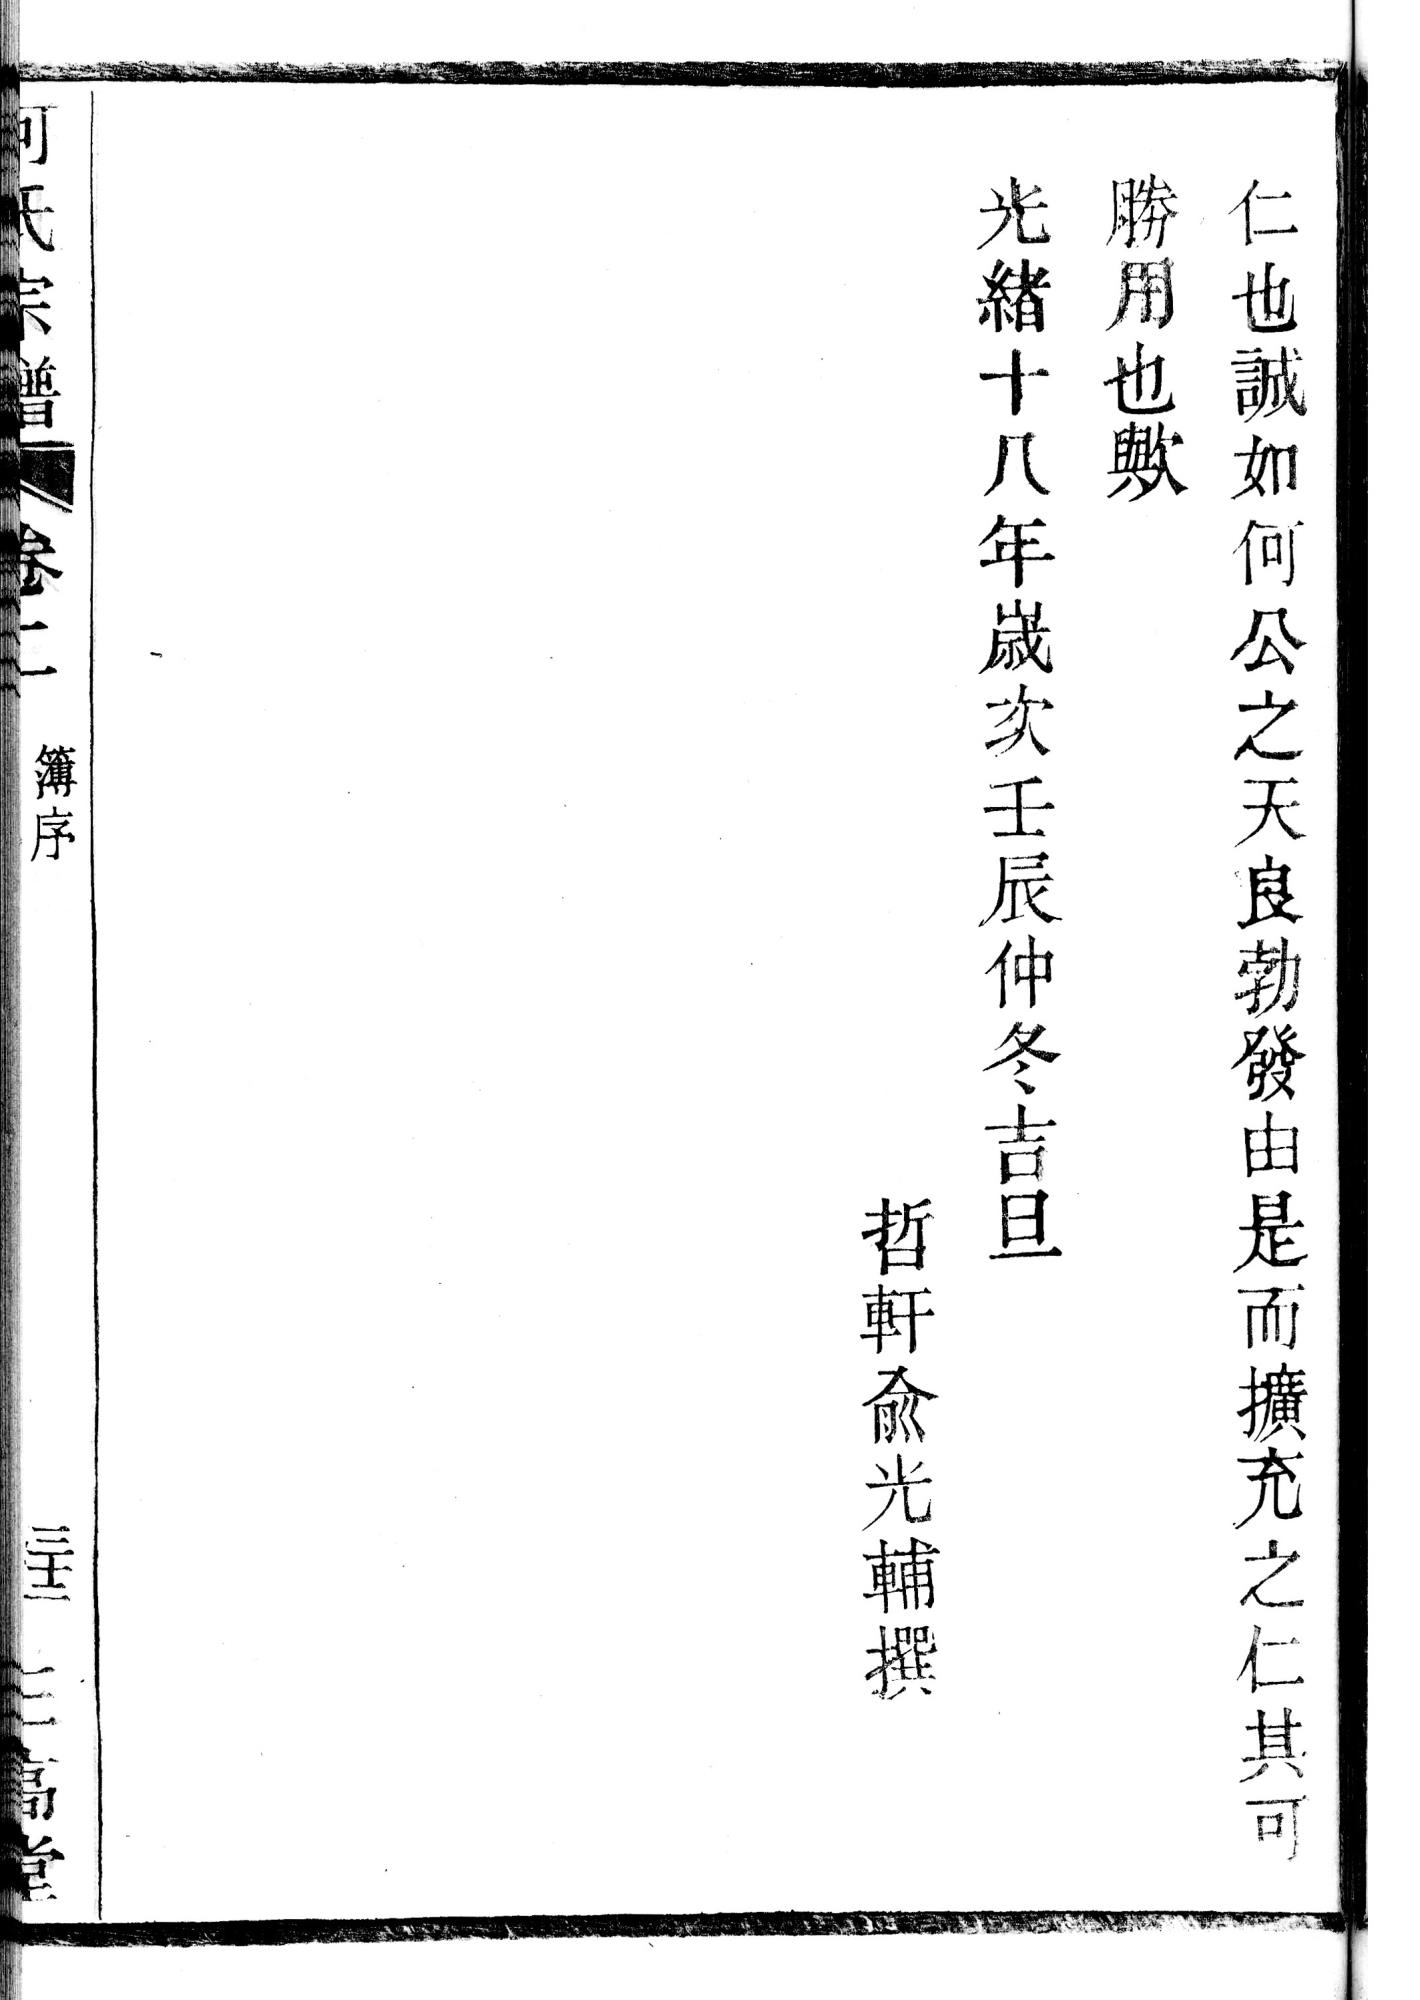 仁也誠如何公之天良勃發由是而擴充之仁其可
勝用也歟
光緒十八年歲次壬辰仲冬吉旦
哲軒俞光輔撰
何氏宗譜 卷二 簿序 三十二 三高堂